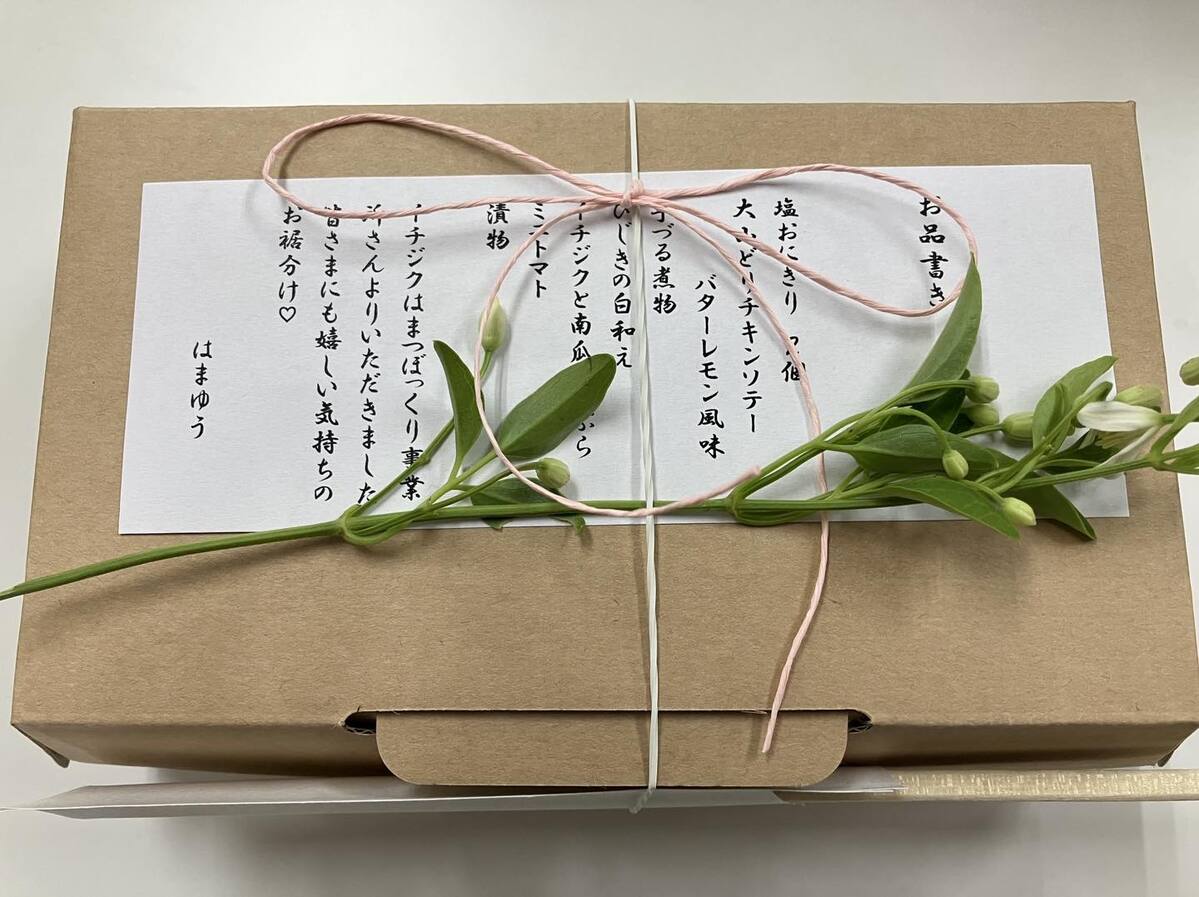 お品書き
塩おにぎり 個
大山どりチキンソテー
バターレモン風味
づる煮物
ひじきの白和え
イチジクと南瓜 ぷら
ミニトマト
漬物
イチジクはまつぼっくり事業
さんよりいただきました
皆さまにも嬉しい気持ちの
お裾分け♡
はまゆう